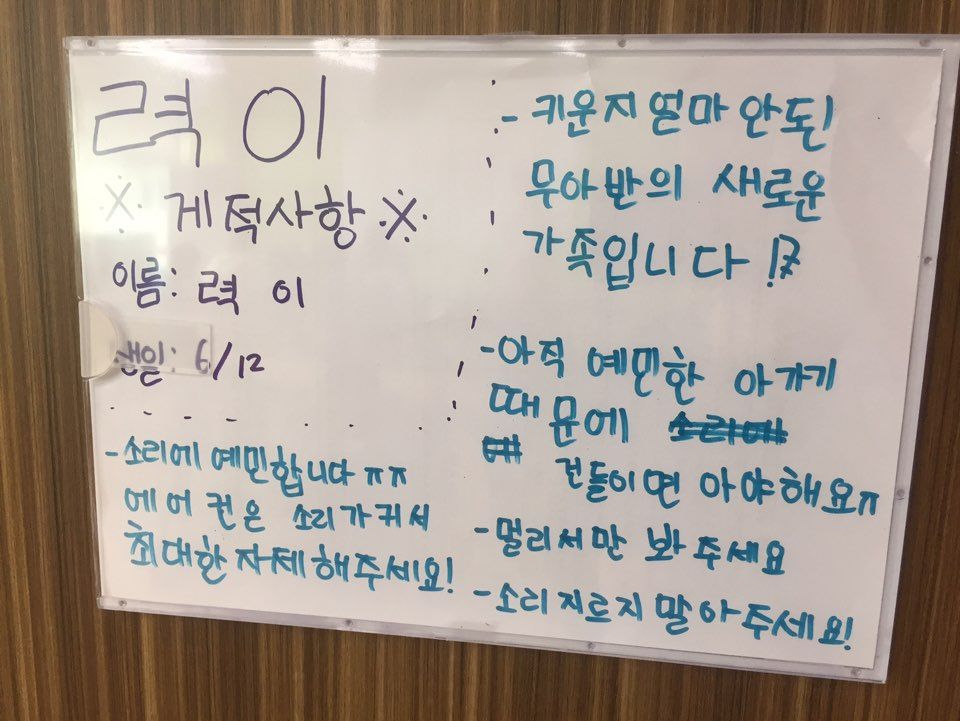 력이
※ 게적사항 ※
이름: 력이
생일: 6/12
- 소리에 예민합니다ㅠㅠ
에어 컨은 소리가 커서
최대한 자제해주세요!
- 키운지 얼마 안된
무아반의 새로운
가족입니다!
- 아직 예민한 아가기
때문에
건들이면 아야해요ㅠ
- 멀리서만 봐주세요
- 소리지르지 말아주세요!